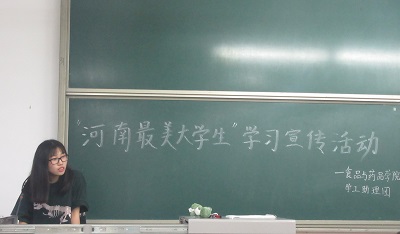 "河南最美大学生"学习宣传活动
—食品与药品学院
学工助理团